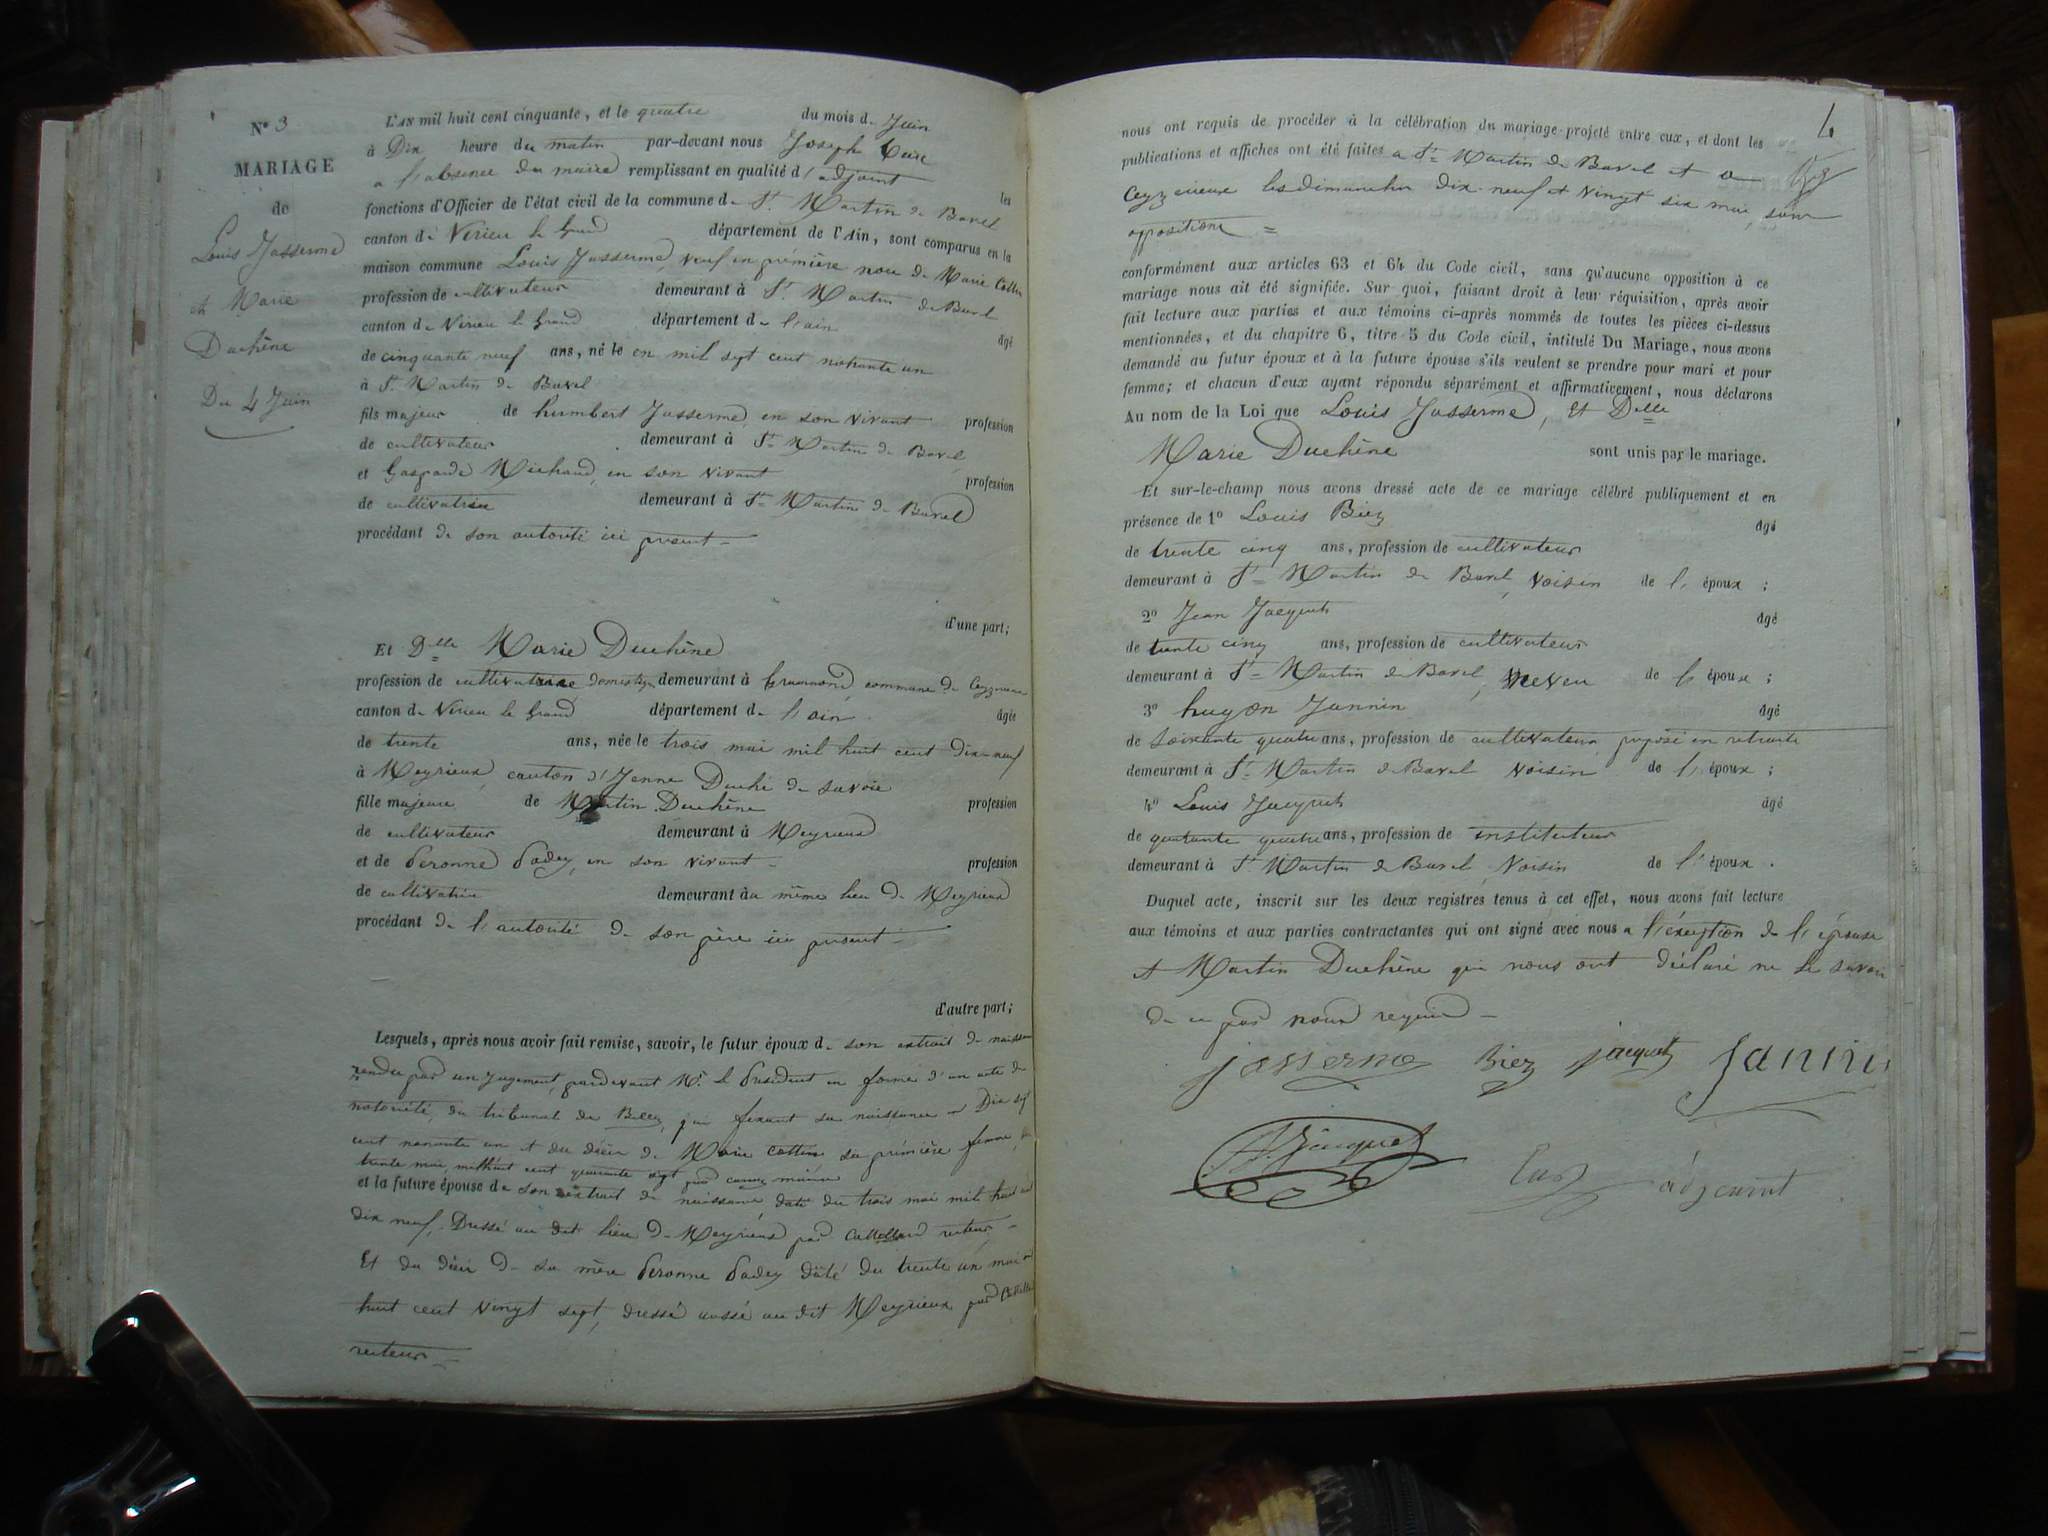 N° 3
MARIAGE
de
Louis Jasserme
et Marie
Duchêne
Du 4 Juin
L'AN mil huit cent cinquante, et le quatre du mois d. Juin
à Dix heure du matin par-devant nous Joseph
a l'absence du maire remplissant en qualité d'adjoint les
fonctions d'Officier de l'état civil de la commune d. St. Martin de Bavel
canton de Virieu le Grand département de l'Ain, sont comparus en la
maison commune Louis Jasserme, veuf en première noce de Marie Cottin
profession de cultivateur demeurant à St. Martin de Bavel
canton d. Virieu le Grand département d. l'ain âgé
de cinquante neuf ans, né le en mil sept cent nonante un
à St. Martin de Bavel
fils majeur de humbert Jasserme, en son vivant profession
de cultivateur demeurant à St. Martin de Bavel
et Gasparde Michaud, en son vivant profession
de cultivatrice demeurant à St. Martin de Bavel
procédant de son autorité ici présent
d'une part;
Et Delle Marie Duchêne
profession de cultivatrice domestique demeurant à commune de Ceyzerieux
canton d. Virieu le Grand département d. l'ain âgée
de trente ans, née le trois mai mil huit cent dix-neuf
à Meyrieux, canton d'Yenne Duché de Savoie
fille majeure de Martin Duchêne profession
de cultivateur demeurant à Meyrieux
et de Peronne Padey, en son vivant profession
de cultivatrice demeurant à au même lieu de Meyrieux
procédant de l'autorité de son père ici présent
d'autre part;
Lesquels, après nous avoir fait remise, savoir, le futur époux d. son extrait de naissance
rendu par un jugement, pardevant Mr. le Président en forme d'un acte de
notoriété, du tribunal de Belley, qui fixant sa naissance a Dix sept
cent nonante un et du décès de Marie Cottin sa première femme
trente mai, mil huit cent quarante sept
et la future épouse de son extrait de naissance daté du trois mai mil huit cent
dix neuf, Dressé au dit lieu de Meyrieux par recteur
Et du décès de sa mère Peronne Padey daté du trente un mai
huit cent vingt sept, dressé aussi au dit Meyrieux, par
recteur
4
nous ont requis de procéder à la célébration du mariage projeté entre eux, et dont les
publications et affiches ont été faites a St. Martin de Bavel et a
Ceyzerieux les dimanches dix-neuf et vingt six mai, sans
opposition =
conformément aux articles 63 et 64 du Code civil, sans qu'aucune opposition à ce
mariage nous ait été signifiée. Sur quoi, faisant droit à leur réquisition, après avoir
fait lecture aux parties et aux témoins ci-après nommés de toutes les pièces ci-dessus
mentionnées, et du chapitre 6, titre 5 du Code civil, intitulé Du Mariage, nous avons
demandé au futur époux et à la future épouse s'ils veulent se prendre pour mari et pour
femme; et chacun d'eux ayant répondu séparément et affirmativement, nous déclarons
Au nom de la Loi que Louis Jasserme, et Delle
Marie Duchêne sont unis par le mariage.
Et sur-le-champ nous avons dressé acte de ce mariage célébré publiquement et en
présence de 1° Louis Biez âgé
de trente cinq ans, profession de cultivateur
demeurant à St. Martin de Bavel, voisin de l' époux ;
2° Jean Jacquet âgé
de trente cinq ans, profession de cultivateur
demeurant à St. Martin de Bavel, neveu de l' époux ;
3° hugon Jannin âgé
de soixante quatre ans, profession de cultivateur, préposé en retraite
demeurant à St. Martin de Bavel voisin de l' époux ;
4° Louis Jacquet âgé
de quarante quatre ans, profession de instituteur
demeurant à St. Martin de Bavel, voisin de l' époux .
Duquel acte, inscrit sur les deux registres tenus à cet effet, nous avons fait lecture
aux témoins et aux parties contractantes qui ont signé avec nous a l'éxception de l'épouse
et Martin Duchêne qui nous ont déclaré ne le savoir
de ce par nous requis
jasserme Biez jacquet Janin
L. Jacquet adjoint